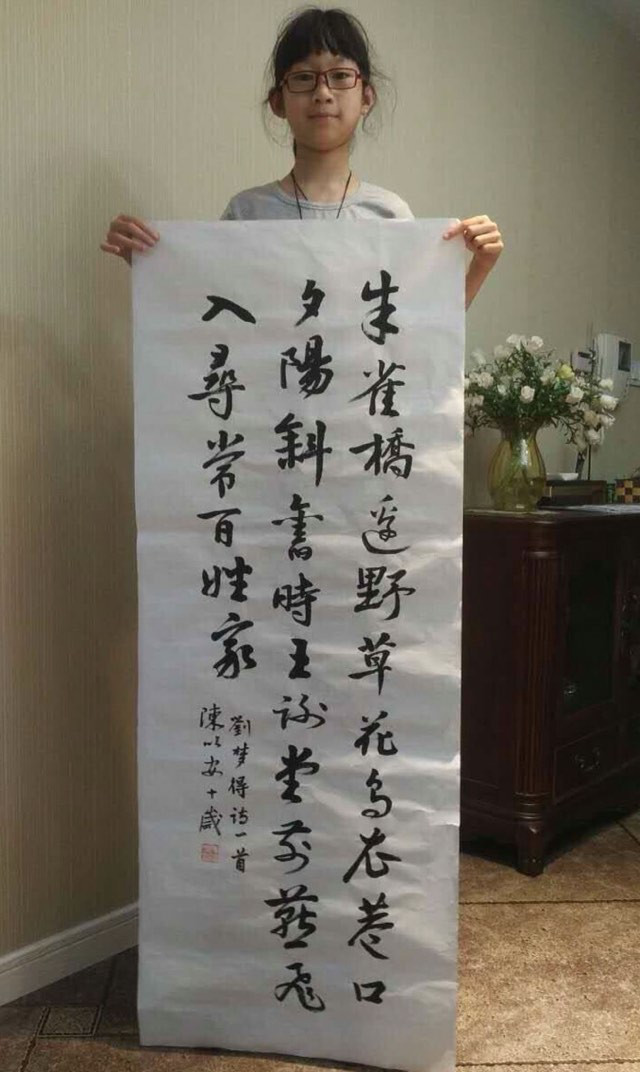 朱雀橋邊野草花烏衣巷口
夕陽斜舊時王謝堂前燕飛
入尋常百姓家
劉梦得詩一首
陳以安十歲